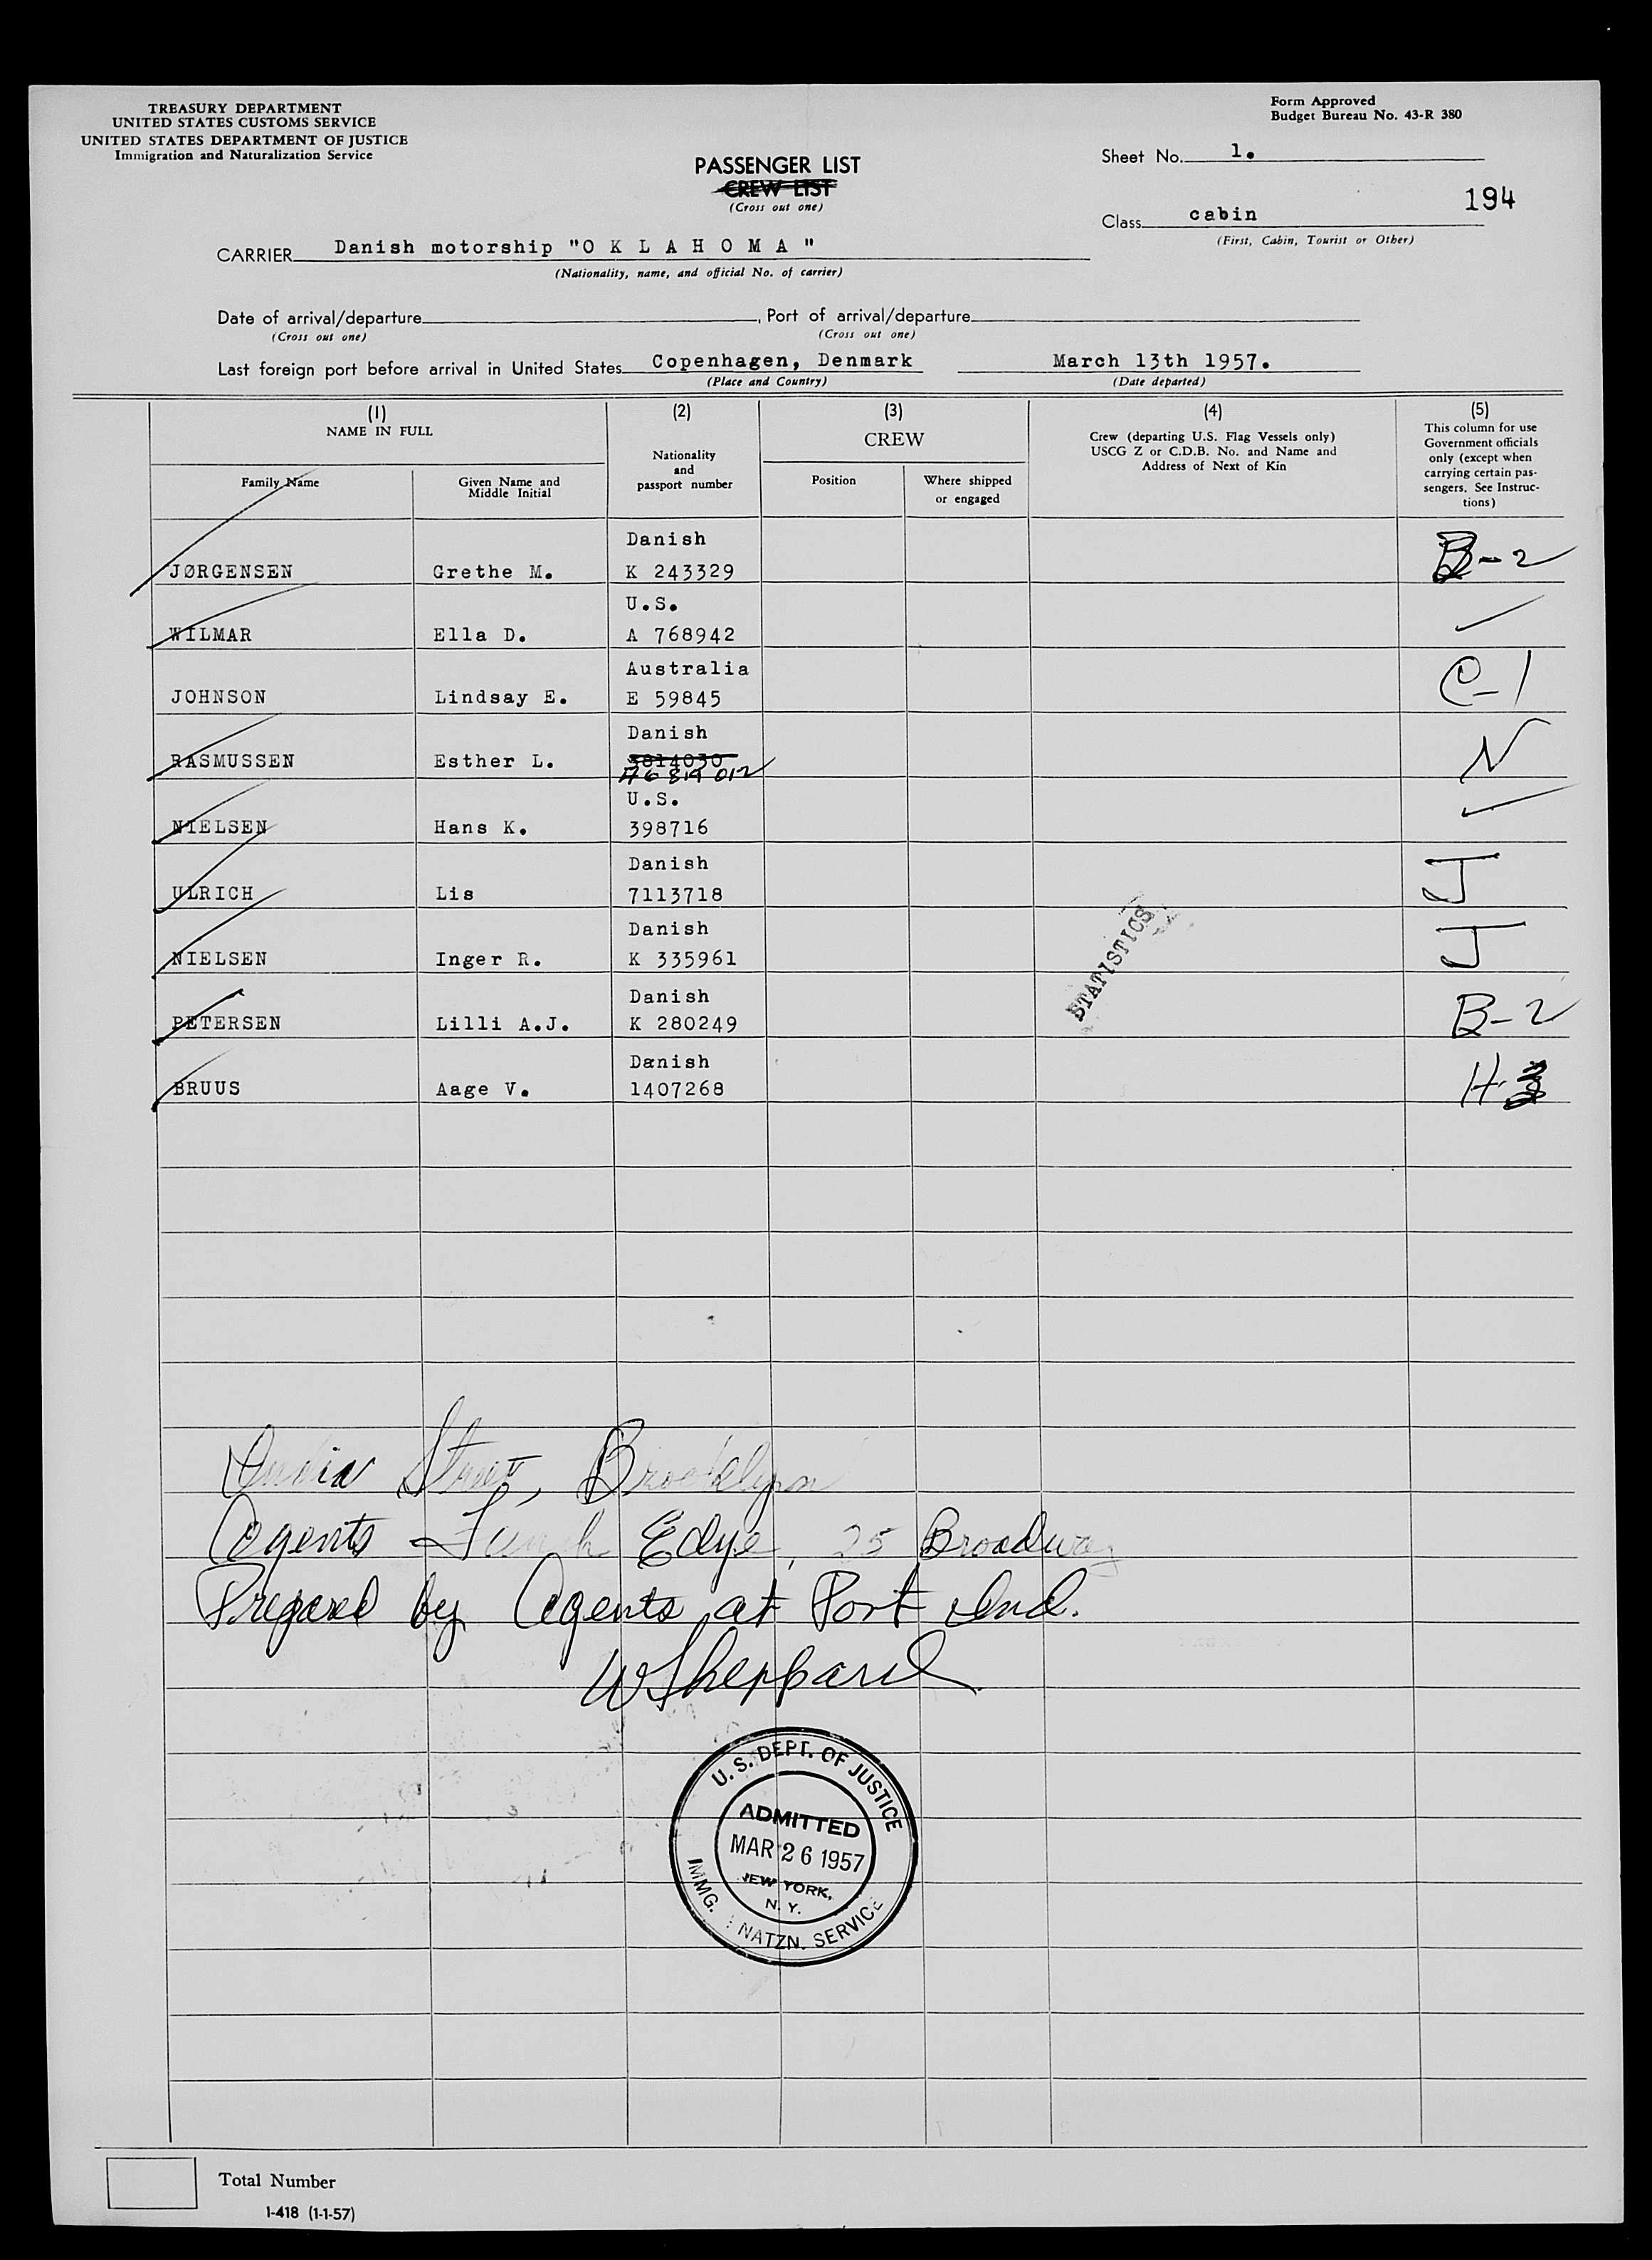 TREASURY DEPARTMENT
UNITED STATES CUSTOMS SERVICE
UNITED STATES DEPARTMENT OF JUSTICE
Immigration and Naturalization Service
Form Approved
Budget Bureau No. 43-R 380
PASSENGER LIST
CREW LIST
(Cross out one)
Sheet No. 1.
194
Class cabin
(First, Cabin, Tourist or Other)
CARRIER Danish motorship "O K L A H O M A "
(Nationality, name, and official No. of carrier)
Date of arrival/departure , Port of arrival/departure
(Cross out one) (Cross out one)
Last foreign port before arrival in United States Copenhagen, Denmark March 13th 1957.
(Place and Country) (Date departed)
(1) (2) (3) (4) (5)
NAME IN FULL
Family Name
Given Name and
Middle Initial
Nationality
and
passport number
CREW
Position
Where shipped
or engaged
Crew (departing U.S. Flag Vessels only)
USCG Z or C.D.B. No. and Name and
Address of Next of Kin
This column for use
Government officials
only (except when
carrying certain pas-
sengers. See Instruc-
tions)
Danish
JØRGENSEN Grethe M. K 243329 B-2
U.S.
WILMAR Ella D. A 768942
Australia
JOHNSON Lindsay E. E 59845 C-1
Danish
RASMUSSEN Esther L. N
U.S.
NIELSEN Hans K. 398716
Danish
ULRICH Lis 7113718 J
Danish
NIELSEN Inger R. K 335961 J
Danish
PETERSEN Lilli A.J. K 280249 B-2
Danish
BRUUS Aage V. 1407268 H-3
STATISTICS
India Street, Brooklyn
Agents - Funch Edye, 25 Broadway
Prepared by Agents at Port
WSheppard
U. S. DEPT. OF JUSTICE
ADMITTED
MAR 26 1957
NEW YORK,
N. Y.
IMMG. NATZN. SERVICE
Total Number
I-418 (1-1-57)